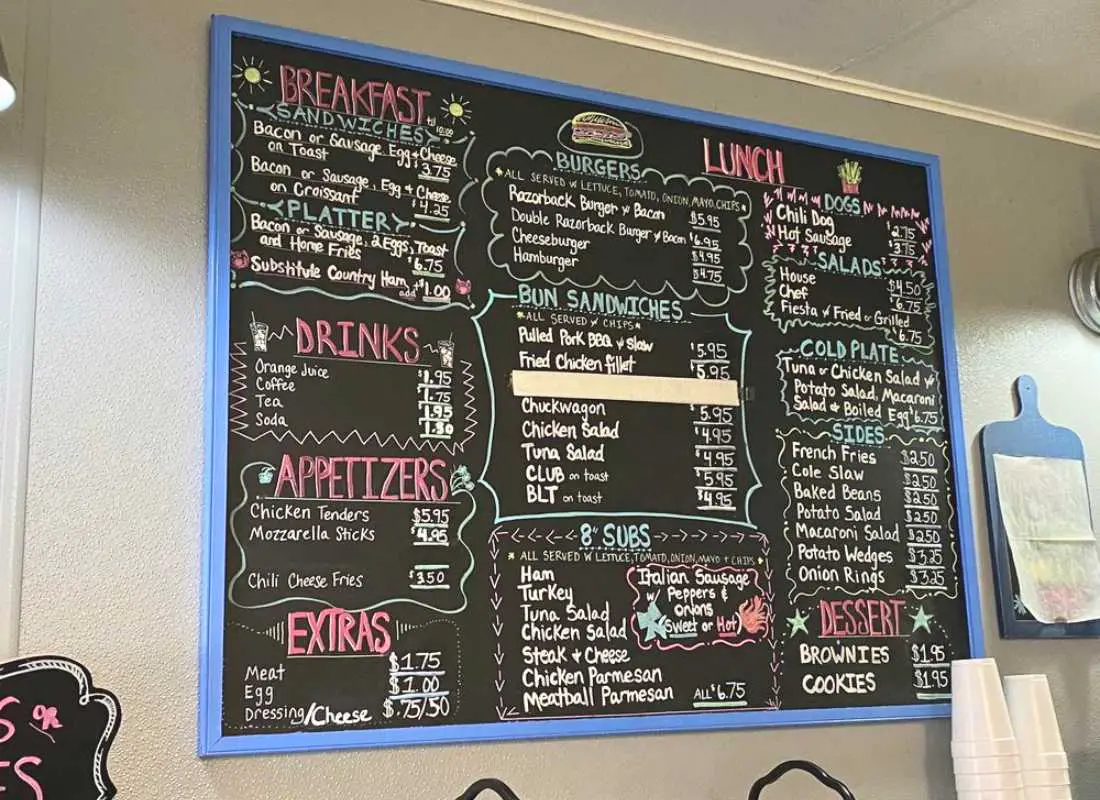 BREAKFAST
SANDWICHES
til 10:00
Bacon or Sausage, Egg & Cheese
on Toast 3.75
Bacon or Sausage, Egg & Cheese
on Croissant $4.25
PLATTER
Bacon or Sausage, 2 Eggs, Toast
and Home Fries $6.75
Substitute Country Ham
add +$1.00
DRINKS
Orange Juice $1.95
Coffee 1.75
Tea 1.95
Soda 1.30
APPETIZERS
Chicken Tenders $5.95
Mozzarella Sticks $4.95
Chili Cheese Fries $3.50
EXTRAS
Meat $1.75
Egg $1.00
Dressing/Cheese $.75/50
LUNCH
BURGERS
*ALL SERVED W LETTUCE, TOMATO, ONION, MAYO, CHIPS*
Razorback Burger w Bacon $5.95
Double Razorback Burger w Bacon $6.95
Cheeseburger $4.95
Hamburger $4.75
BUN SANDWICHES
*ALL SERVED W CHIPS*
Pulled Pork BBQ w Slaw $5.95
Fried Chicken fillet $5.95
Chuckwagon 5.95
Chicken Salad $4.95
Tuna Salad $4.95
CLUB on toast $5.95
BLT on toast $4.95
8" SUBS
* ALL SERVED W LETTUCE, TOMATO, ONION, MAYO + CHIPS*
Ham
Turkey
Tuna Salad
Chicken Salad
Steak & Cheese
Chicken Parmesan
Meatball Parmesan ALL $6.75
Italian Sausage
w/ Peppers &
onions
(Sweet or Hot)
DOGS
Chili Dog $2.75
Hot Sausage $3.75
SALADS
House $4.50
Chef $6.75
Fiesta w Fried or Grilled
$6.75
COLD PLATE
Tuna or Chicken Salad w
Potato Salad, Macaroni
Salad & Boiled Egg $6.75
SIDES
French Fries $2.50
Cole Slaw $2.50
Baked Beans $2.50
Potato Salad $2.50
Macaroni Salad $2.50
Potato Wedges $3.25
Onion Rings $3.25
DESSERT
BROWNIES $1.95
COOKIES $1.95
OR